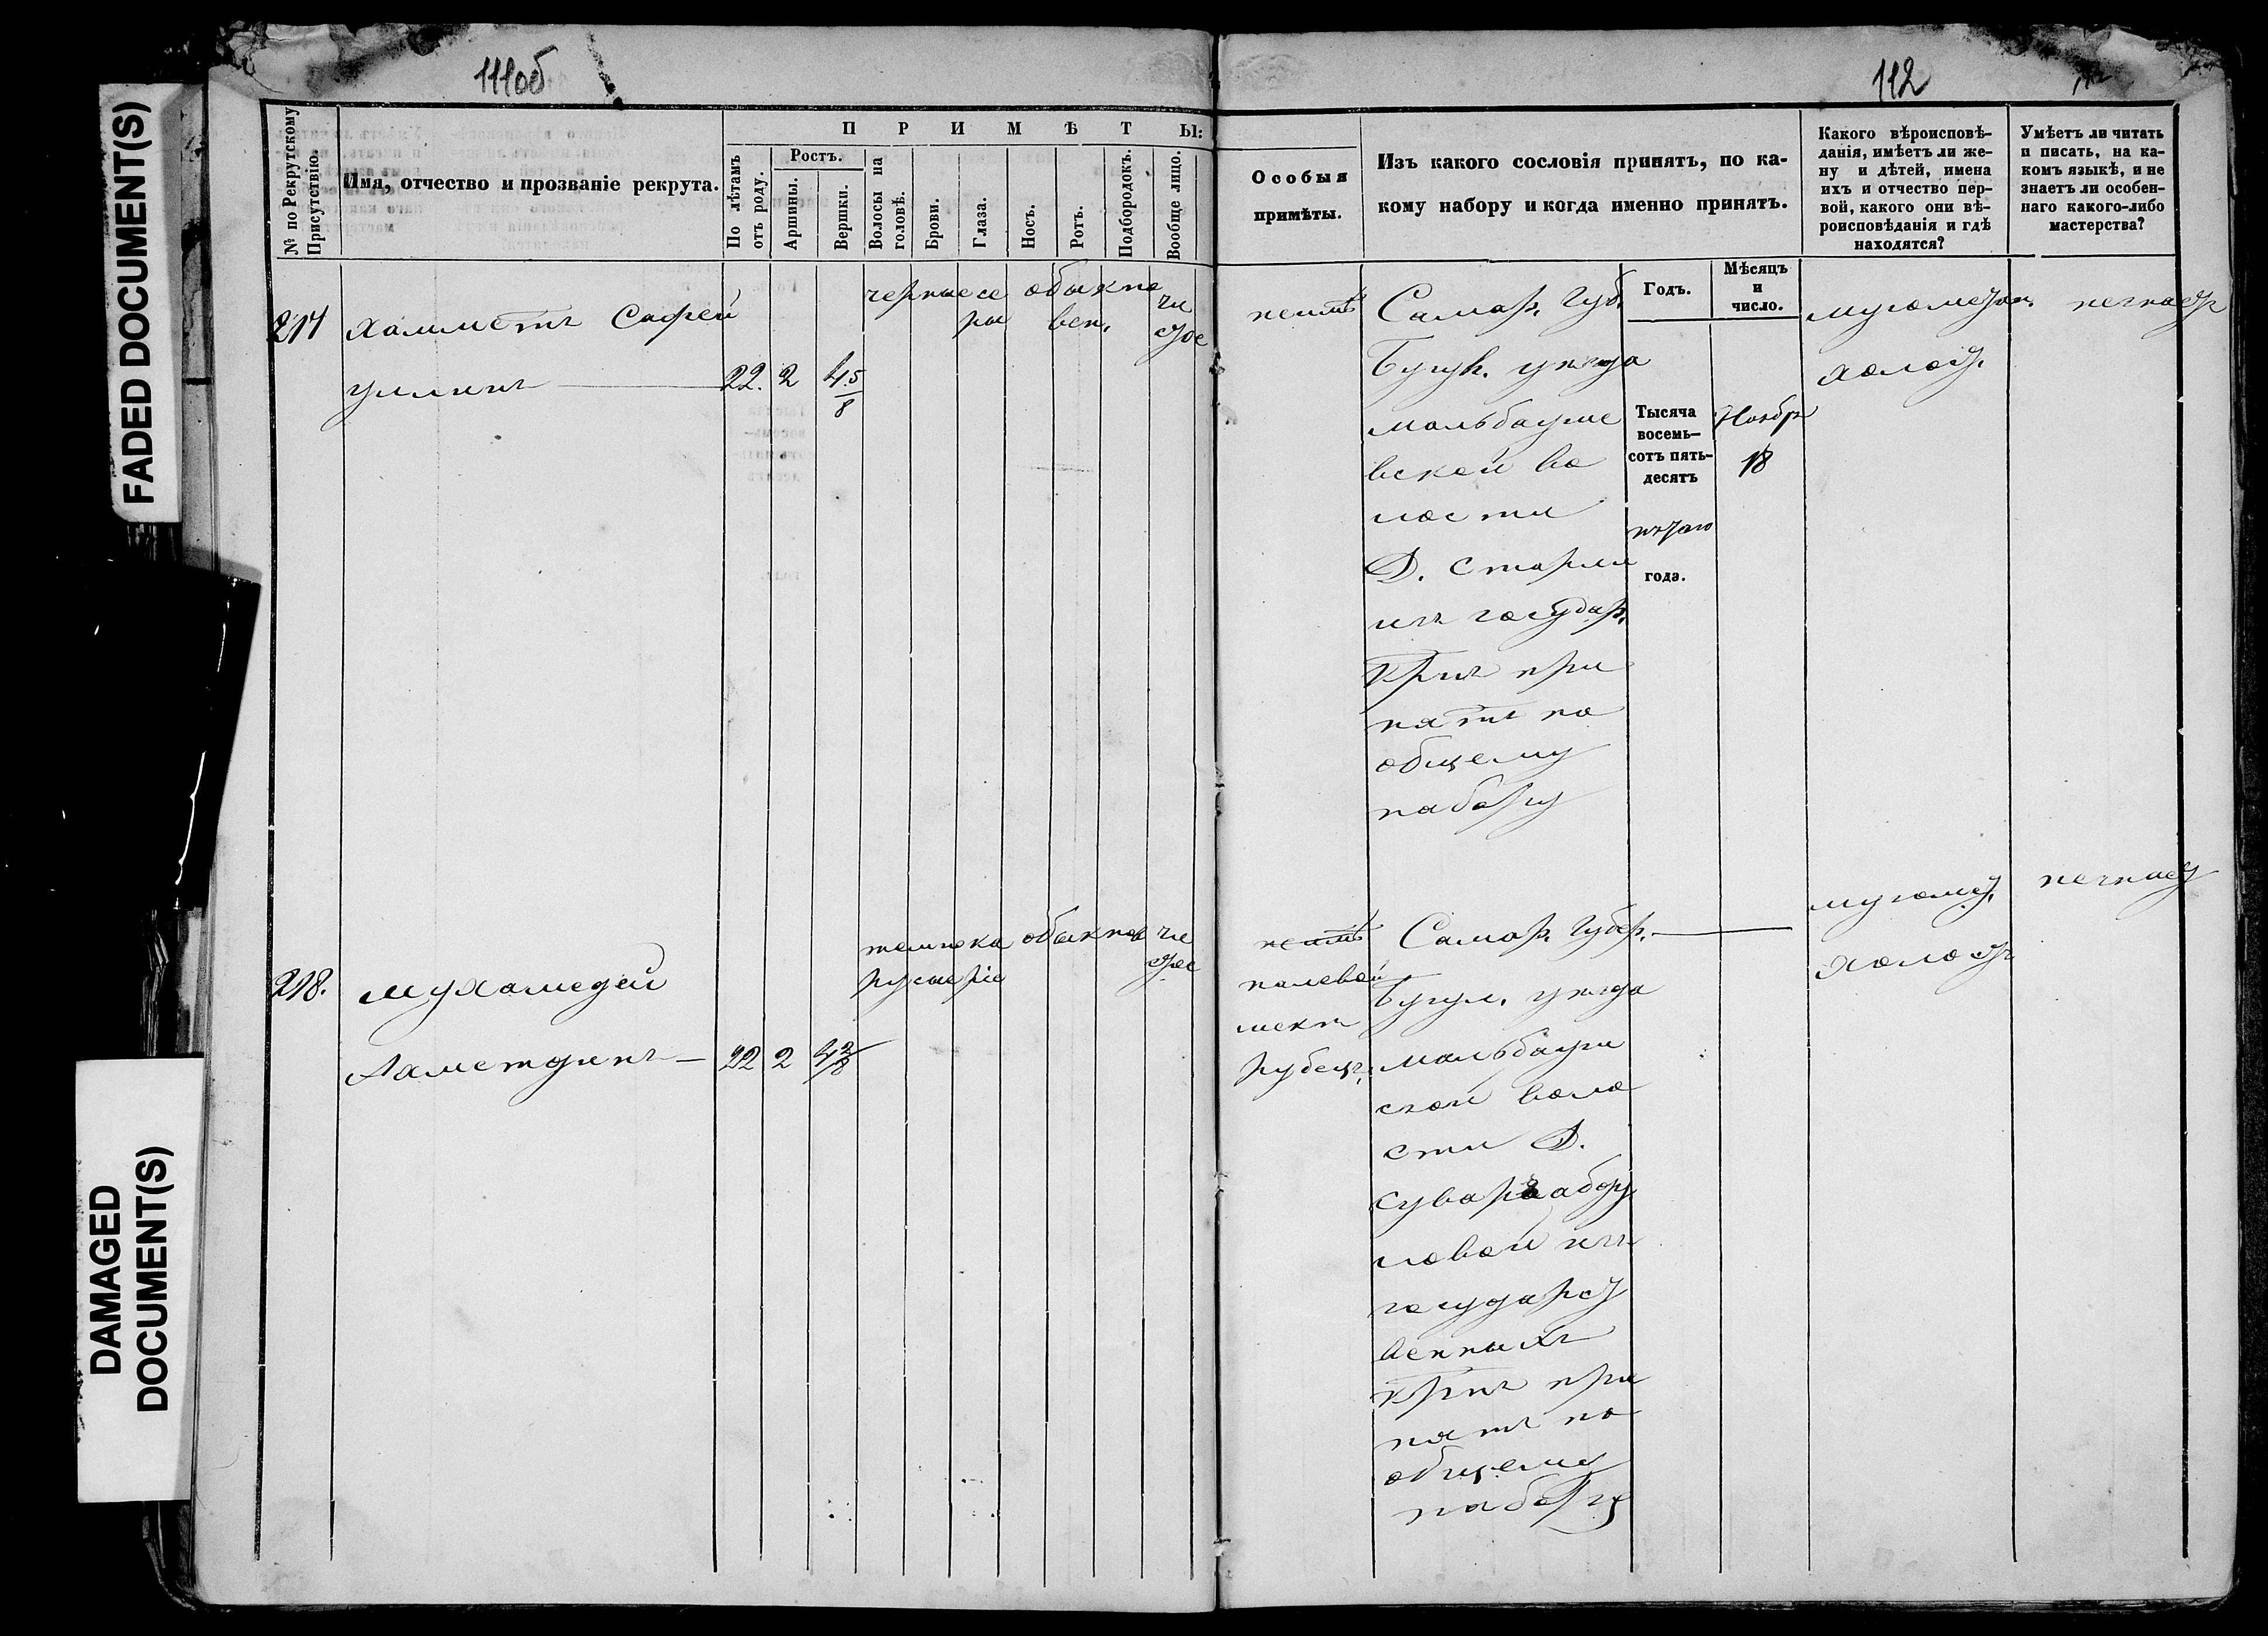 111об
112
FADED DOCUMENT(S)
DAMAGED
DOCUMENT(S)
№ по Рекрутскому
Присутствію.
Имя, отчество и прозваніе рекрута.
ПРИМѢТЫ:
По лѣтамъ
отъ роду.
Ростъ.
Аршины.
Вершки.
Волосы на
головѣ.
Брови.
Глаза.
Носъ.
Ротъ.
Подбородокъ.
Вообще лицо.
Особыя
примѣты.
Изъ какого сословія принятъ, по ка-
кому набору и когда именно принятъ.
Какого вѣроисповѣ-
данія, имѣетъ ли же-
ну и дѣтей, имена
ихъ и отчество пер-
вой, какого они вѣ-
роисповѣданія и гдѣ
находятся?
Умѣетъ ли читать
и писать, на ка-
комъ языкѣ, и не
знаетъ ли особен-
наго какого-либо
мастерства?
Годъ.
Мѣсяцъ
и
число.
217
Хамметъ Сафей
уллинъ
22. 2 4 5/8
черные се
ры
обыкно
вен.
чи
стое
неимѣ
Самар. губ.
Бугул. уѣзда
мальбагуше
вской во
лости
Д.
изъ государ.
крнъ при
нятъ по
общему
набору
Тысяча
восемь-
сотъ пять-
десятъ
пятаго
года.
Ноябрь
18
мугометан.
холост.
незнаетъ
218.
Мухамедей
Ахметдинъ
22 2 4 2/8
темнока
рус
серіе
обыкнов
чи
стое
неимѣ
полевой
рубецъ
Самар. губер.
Бугул. уѣзда
мальбагуш
ской воло
сти Д.
ловой изъ
государст
венныхъ
крнъ при
нятъ по
общему
набору
мугомет.
холостъ
незнает